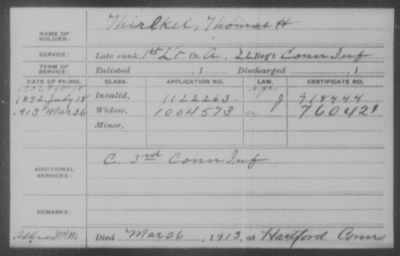 NAME OF SOLDIER: Thirlkel, Thomas H
SERVICE: Late rank, 1st Lt Co. A, 22 Reg't Conn Inf
TERM OF SERVICE: Enlisted , 1 Discharged , 1
DATE OF FILING. CLASS. APPLICATION NO. LAW. CERTIFICATE NO.
1892 July 18 Invalid, 1122263 J 918444
1913 Mar 26 Widow, 1004573 76042
Minor,
ADDITIONAL SERVICES: C. 3rd Conn Inf
REMARKS:
Died Mar 06, 1913, at Hartford Conn